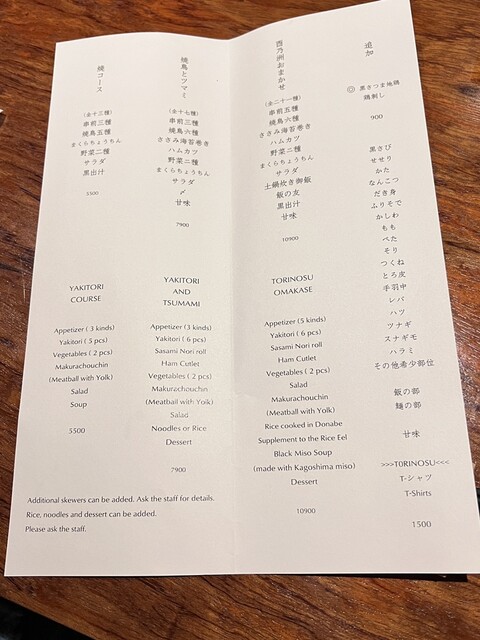 焼コース
(全十三種)
串前三種
焼鳥五種
まくらちょうちん
野菜二種
サラダ
黒出汁
5500
YAKITORI
COURSE
Appetizer ( 3 kinds)
Yakitori ( 5 pcs)
Vegetables ( 2 pcs)
Makurachouchin
(Meatball with Yolk)
Salad
Soup
5500
焼鳥とツマミ
(全十七種)
串前三種
焼鳥六種
ささみ海苔巻き
ハムカツ
野菜二種
まくらちょうちん
サラダ
〆
甘味
7900
YAKITORI
AND
TSUMAMI
Appetizer (3 kinds)
Yakitori ( 6 pcs)
Sasami Nori roll
Ham Cutlet
Vegetables ( 2 pcs)
Makurachouchin
(Meatball with Yolk)
Salad
Noodles or Rice
Dessert
7900
酉乃洲おまかせ
(全二十一種)
串前五種
焼鳥六種
ささみ海苔巻き
ハムカツ
野菜二種
まくらちょうちん
サラダ
土鍋炊き御飯
飯の友
黒出汁
甘味
10900
TORINOSU
OMAKASE
Appetizer (5 kinds)
Yakitori ( 6 pcs)
Sasami Nori roll
Ham Cutlet
Vegetables ( 2 pcs)
Salad
Makurachouchin
(Meatball with Yolk)
Rice cooked in Donabe
Supplement to the Rice Eel
Black Miso Soup
(made with Kagoshima miso)
Dessert
10900
追加
◎ 黒さつま地鶏
鶏刺し
900
黒さび
せせり
かた
なんこつ
だき身
ふりそで
かしわ
もも
ぺた
そり
つくね
とろ皮
手羽中
レバ
ハツ
ツナギ
スナギモ
ハラミ
その他希少部位
飯の部
麺の部
甘味
>>>TORINOSU<<<
T-シャツ
T-Shirts
1500
Additional skewers can be added. Ask the staff for details.
Rice, noodles and dessert can be added.
Please ask the staff.